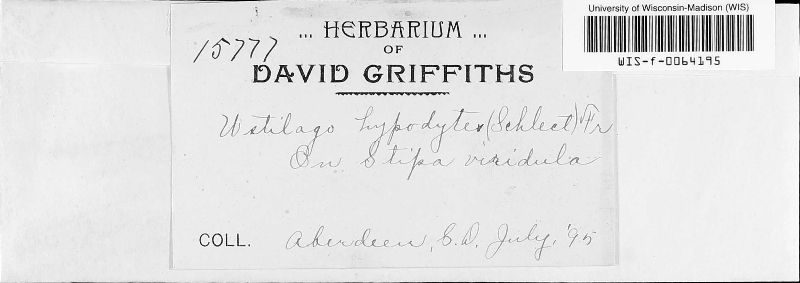 University of Wisconsin-Madison (WIS)
WIS-f-0064195
15777
... HERBARIUM ...
OF
DAVID GRIFFITHS
Ustilago hypodytes (Schlect) Fr
On Stipa viridula
COLL. Aberdeen, S.D. July, '95